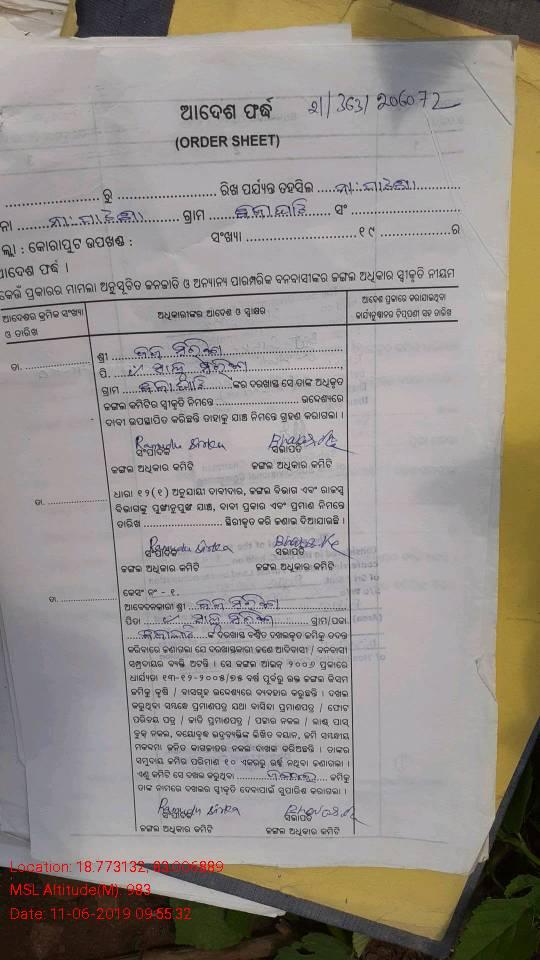 ଆଦେଶ ଫର୍ଦ୍ଦ 21/363/206072
(ORDER SHEET)
.................... ରୁ .......................... ରିଖ ପର୍ଯ୍ୟନ୍ତ ତହସିଲ
ନା ........ ଗ୍ରାମ ........ ସଂ ........................
ଲ୍ଲା : କୋରାପୁଟ ଉପଖଣ୍ଡ : ସଂଖ୍ୟା ........................ ୧୯ ....................ର
ଆଦେଶ ଫର୍ଦ୍ଦ ।
କେଉଁ ପ୍ରକାରର ମାମଲା ଅନୁସୂଚିତ ଜନଜାତି ଓ ଅନ୍ୟାନ୍ୟ ପାରମ୍ପରିକ ବନବାସୀଙ୍କର ଜଙ୍ଗଲ ଅଧିକାର ସ୍ୱୀକୃତି ନିୟମ
ଆଦେଶର କ୍ରମିକ ସଂଖ୍ୟା ଓ ତାରିଖ
ଅଧିକାରୀଙ୍କର ଆଦେଶ ଓ ସ୍ୱାକ୍ଷର
ଆଦେଶ ପ୍ରକାରେ କରାଯାଇଥିବା
କାର୍ଯ୍ୟାନୁଷ୍ଠାନର ଟିପ୍ପଣୀ ସହ ତାରିଖ
ତା. .................... ଶ୍ରୀ
ପି.
ଗ୍ରାମ ........ ଙ୍କର ଦରଖାସ୍ତ ସେ ତାଙ୍କ ଅଧିକୃତ
ଜଙ୍ଗଲ ଜମିଟିର ସ୍ୱୀକୃତି ନିମନ୍ତେ ........................ ଉଦ୍ଦେଶ୍ୟରେ
ଦାବୀ ଉପସ୍ଥାପିତ କରିଛନ୍ତି ତାହାକୁ ଯାଞ୍ଚ ନିମନ୍ତେ ଗ୍ରହଣ କରାଗଲା ।
ସଂପାଦକ ସଭାପତି
ଜଙ୍ଗଲ ଅଧିକାର କମିଟି ଜଙ୍ଗଲ ଅଧିକାର କମିଟି
ଧାରା ୧୨(୧) ଅନୁଯାୟୀ ଦାବୀଦାର, ଜଙ୍ଗଲ ବିଭାଗ ଏବଂ ରାଜସ୍ୱ
ତା. .................... ବିଭାଗଙ୍କୁ ପୁଙ୍ଖାନୁପୁଙ୍ଖ ଯାଞ୍ଚ, ଦାବୀ ପ୍ରକାର ଏବଂ ପ୍ରମାଣ ନିମନ୍ତେ
ତାରିଖ .................... ସ୍ଥିରୀକୃତ କରି ଜଣାଇ ଦିଆଯାଇଛି ।
ସଂପାଦକ ସଭାପତି
ଜଙ୍ଗଲ ଅଧିକାର କମିଟି ଜଙ୍ଗଲ ଅଧିକାର କମିଟି
କେସ୍ ନଂ - ୧.
ତା. .................... ଆବେଦନକାରୀ ଶ୍ରୀ
ପିତା ........ ଗ୍ରାମ/ପଡା
ଙ୍କ ଦରଖାସ୍ତ ବର୍ଣ୍ଣିତ ଦଖଲକୃତ ଜମିକୁ ତଦନ୍ତ
କରିବାରେ ଜଣାଗଲା ଯେ ଦରଖାସ୍ତକାରୀ ଜଣେ ଆଦିବାସୀ / ବନବାସୀ
ସମ୍ପ୍ରଦାୟର ବ୍ୟକ୍ତି ଅଟନ୍ତି । ସେ ଜଙ୍ଗଲ ଆଇନ୍ ୨୦୦୬ ପ୍ରକାରେ
ଧାର୍ଯ୍ୟତା ୧୩-୧୨-୨୦୦୫/୭୫ ବର୍ଷ ପୂର୍ବରୁ ଉକ୍ତ ଜଙ୍ଗଲ କିସମ
ଜମିକୁ କୃଷି / ବାସଗୃହ ଉଦ୍ଦେଶ୍ୟରେ ବ୍ୟବହାର କରୁଛନ୍ତି । ଦଖଲ
କରୁଥିବା ସମ୍ବନ୍ଧେ ପ୍ରମାଣପତ୍ର ଯଥା ବାସିନ୍ଦା ପ୍ରମାଣପତ୍ର / ଫଟୋ
ପରିଚୟ ପତ୍ର / ଜାତି ପ୍ରମାଣପତ୍ର / ପଟ୍ଟାର ନକଲ / ଲାଣ୍ଡ୍ ପାସ୍
ବୁକ୍ ନକଲ, ବୟୋବୃଦ୍ଧ ଭଦ୍ରବ୍ୟକ୍ତିଙ୍କ ଲିଖିତ ବୟାନ, ଜମି ସମ୍ବନ୍ଧୀୟ
ମକଦ୍ଦମା ଜନିତ କାଗଜାତର ନକଲ ଦାଖଲ କରିଅଛନ୍ତି । ତାଙ୍କର
ସମୁଦାୟ ଜମିର ପରିମାଣ ୧୦ ଏକରରୁ ଉର୍ଦ୍ଧ୍ୱ ନଥିବା ଜଣାଗଲା ।
ଏଣୁ ଜମିଟି ସେ ଦଖଲ କରୁଥିବା ........ ଜମିକୁ
ତାଙ୍କ ନାମରେ ଦଖଲର ସ୍ୱୀକୃତି ଦେବାପାଇଁ ସୁପାରିଶ କରାଗଲା ।
ସଂପାଦକ ସଭାପତି
ଜଙ୍ଗଲ ଅଧିକାର କମିଟି ଜଙ୍ଗଲ ଅଧିକାର କମିଟି
Location: 18.773132, 83.006889
MSL Altitude(M): 983
Date: 11-06-2019 09:55:32